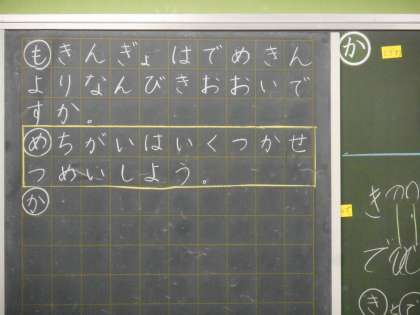 も きんぎょはでめきん
よりなんびきおおいで
すか。
め ちがいはいくつかせ
つめいしよう。
か
か
き
で
き